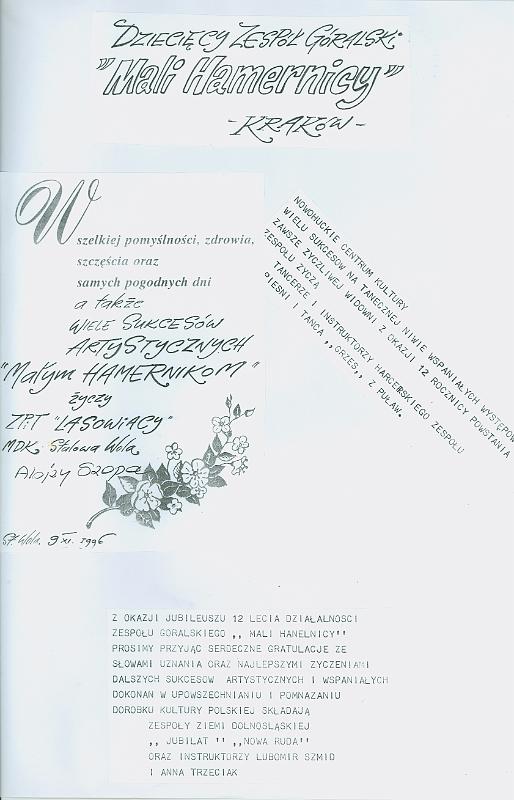 DZIECIĘCY ZESPÓŁ GÓRALSKI
"Mali Hamernicy"
-KRAKÓW-
Wszelkiej pomyślności, zdrowia,
szczęścia oraz
samych pogodnych dni
a także
WIELE SUKCESÓW
ARTYSTYCZNYCH
"Małym HAMERNIKOM"
życzy
ZPiT "LASOWIACY"
MDK Stalowa Wola
Alojzy Szopa
St. Wola. 9 XI. 1996
NOWOHUCKIE CENTRUM KULTURY
WIELU SUKCESOW NA TANECZNEJ NIWIE WSPANIAŁYCH WYSTĘPOW
ZAWSZE ZYCZLIWEJ WIDOWNI Z OKAZJI 12 ROCZNICY POWSTANIA
ZESPOŁU ZYCZĄ
TANCERZE I INSTRUKTORZY HARCERSKIEGO ZESPOŁU
PIESNI I TANCA ,,GRZES,, Z PUŁAW.
Z OKAZJI JUBILEUSZU 12 LECIA DZIAŁALNOSCI
ZESPOŁU GORALSKIEGO ,, MALI HANELNICY''
PROSIMY PRZYJĄC SERDECZNE GRATULACJE ZE
SŁOWAMI UZNANIA ORAZ NAJLEPSZYMI ZYCZENIAMI
DALSZYCH SUKCESOW ARTYSTYCZNYCH I WSPANIAŁYCH
DOKONAN W UPOWSZECHNIANIU I POMNAZANIU
DOROBKU KULTURY POLSKIEJ SKŁADAJĄ
ZESPOŁY ZIEMI DOLNOSLĄSKIEJ
,, JUBILAT '' ,,NOWA RUDA''
ORAZ INSTRUKTORZY LUBOMIR SZMID
I ANNA TRZECIAK